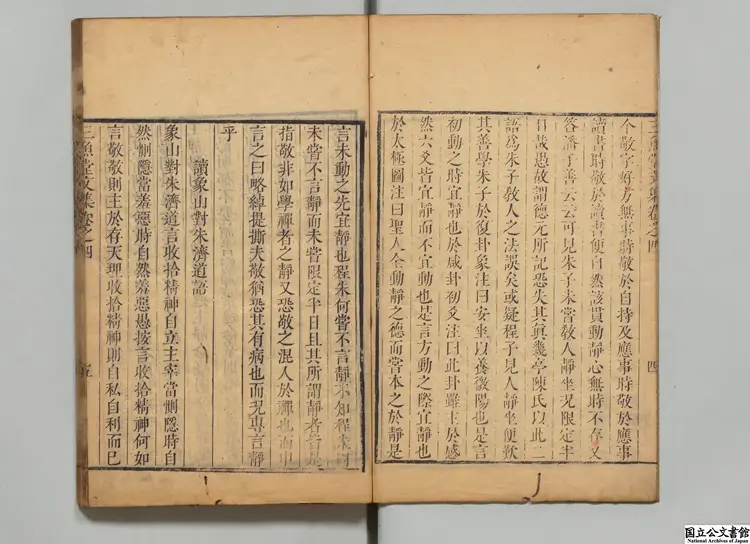 个敬字好方無事時敬於自持及應事時敬於應事
讀書時敬於讀書便自然該貫動靜心無時不存又
答潘子善云云可見朱子未嘗教人靜坐况限定半
日哉愚故謂德元所記恐失其真幾亭陳氏以此二
語爲朱子教人之法誤矣或疑程子見人靜坐便歎
其善學朱子於復卦象注曰安坐以養微陽也是言
初動之時宜靜也於咸卦初爻注曰此卦雖主於感
然六爻皆宜靜而不宜動也是言方動之際宜靜也
於太極圖注曰聖人全動靜之德而嘗本之於靜是
三魚堂文集卷之四
四
言未動之先宜靜也程朱何嘗不言靜不知程朱何
未嘗不言靜而未嘗限定半日且其所謂靜者皆是
指敬非如學禪者之靜又恐敬之混人於禪也而申
言之曰略綽提撕夫敬猶恐其有病也而况專言靜
乎
讀象山對朱濟道語
象山對朱濟道言收拾精神自立主宰當惻隱時自
然惻隱當羞惡時自然羞惡愚按言收拾精神何如
言敬敬則主於存天理收拾精神則自私自利而已
三魚堂文集卷之四
五
国立公文書館
National Archives of Japan